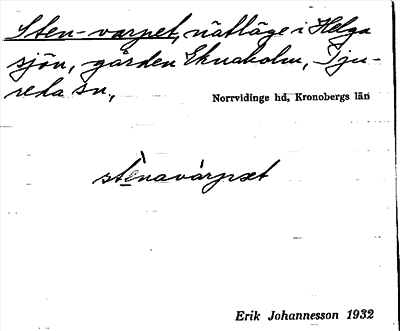 Sten-varpet, nätläge i Helga
sjön, gården Eknaholm, Tju-
reda sn.,
Norrvidinge hd, Kronobergs län
stènavárpæt
Erik Johannesson 1932